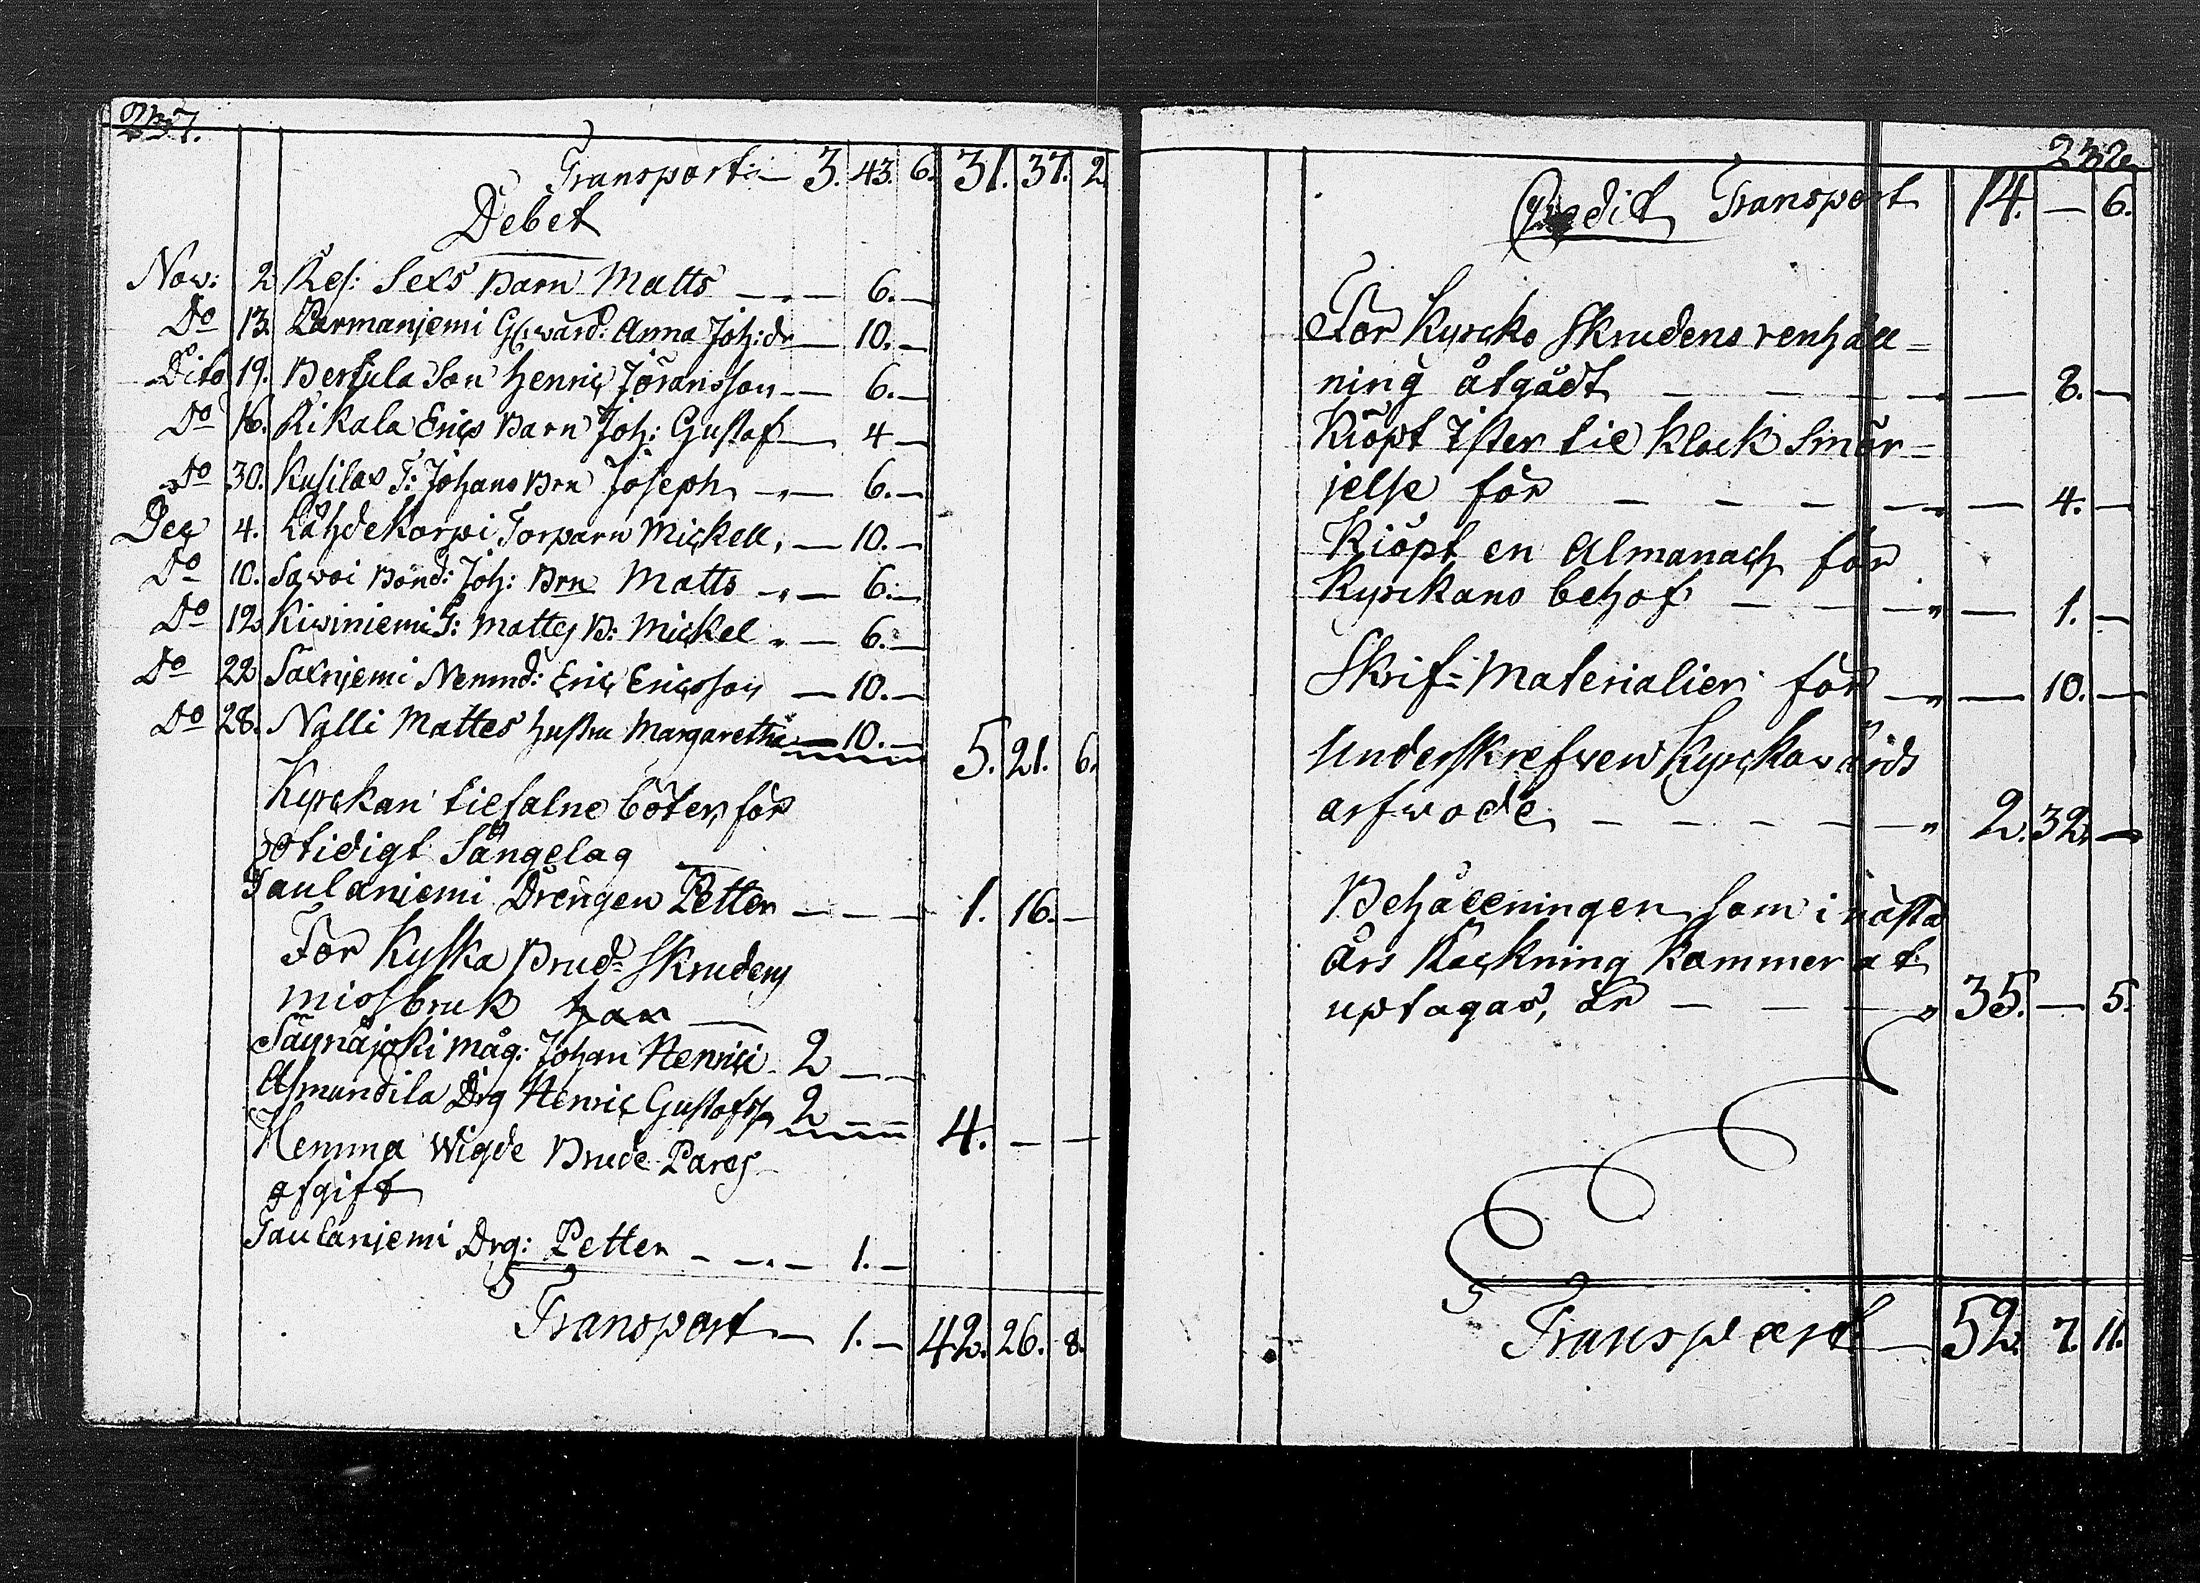 237.
Transport 3. 43. 6. 31. 37. 2.
Debet
Nov: 2 Res: Sexs Barn Matts — 6. —
Do 13. Parmanjemi Gl. värd: Anna Joh:dr — 10. —
Dito 19. Bertula Son Henric Jöransson — 6. —
Do 16. Rikala Erics Barn Joh: Gustaf — 4 —
Do 30. Kusilax T: Johans Brn Joseph — 6. —
Dec 4. Lähdekorpi Torparn Mickell, — 10. —
Do 10. Sawoi Bond: Joh: Brn Matts — 6. —
Do 12. Kiviniemi T: Mattes B: Mickel — 6. —
Do 22 Salnjemi Nemnd: Eric Ericsson — 10. —
Do 28. Nylli Mattes hustru Margaretha — 10. — 5. 21. 6.
Kyrckan tilfalne böter, för
otidigt Sängelag
Taulaniemi Drengen Petter — — — 1. 16. —
For Kyska Brud- Skrudens
missbruk
Säynäjoki måg: Johan Henrici 2 — —
Asmundila Drg Henric Gustafss 2 — — 4. — —
Hemma Wigde Brude Pares
afgift
Taulanjemi Drg: Petter — — — 1. —
Transport — 1. — 42. 26. 8.
232
Credit Transport 14. — 6.
For Kyrcko Skrudens renhåll=
ning åtgådt — — — — 8. —
Kiöpt Ister til Klock Smör=
jelse för — — — — 4. —
Kiöpt en Almanach för
Kyrckans behof — — — — 1. —
Skrif= Materialier för — — 10. —
Underskrefven Kyrckovärds
arfwode — — — — — 2. 32. —
Behållningen som i nästa
Års Räckning kommer at
uptagas, är — — — 35. — 5.
Transport 52. 7. 11.